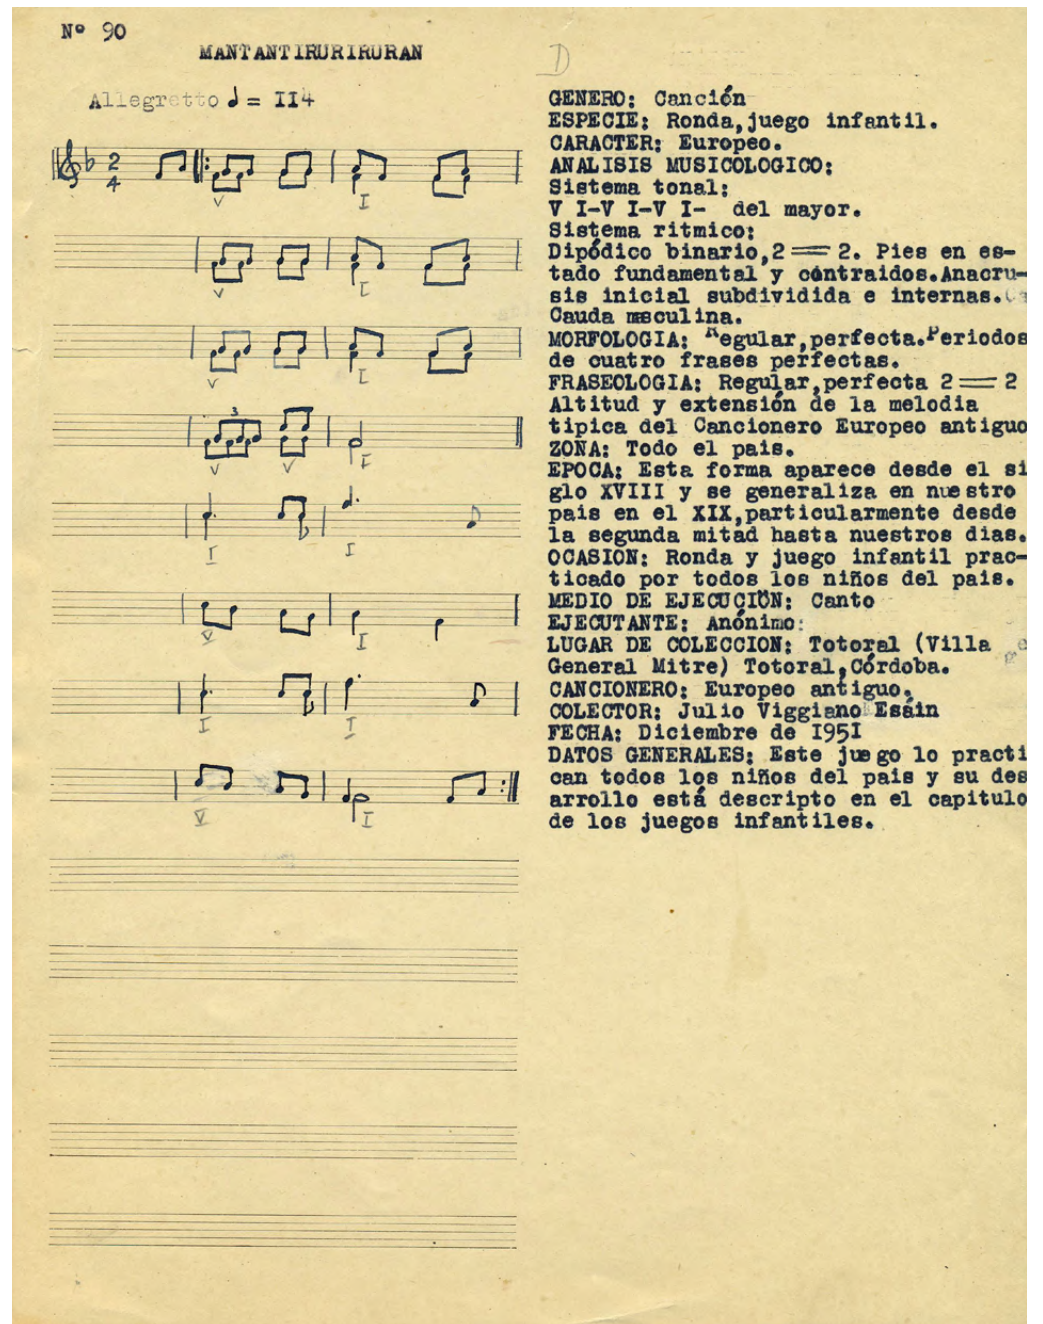 Nº 90
MANTANTIRURIRURAN
D
Allegretto ♩ = II4
2
4
V
I
V
I
V
I
3
V
V
I
I
I
V
I
I
I
V
I
GENERO: Canción
ESPECIE: Ronda,juego infantil.
CARACTER: Europeo.
ANALISIS MUSICOLOGICO:
Sistema tonal:
V I-V I-V I- del mayor.
Sistema ritmico:
Dipódico binario,2 == 2. Pies en es-
tado fundamental y contraidos.Anacru-
sis inicial subdividida e internas.
Cauda masculina.
MORFOLOGIA: Regular,perfecta.Periodos
de cuatro frases perfectas.
FRASEOLOGIA: Regular,perfecta 2 == 2
Altitud y extensión de la melodia
tipica del Cancionero Europeo antiguo
ZONA: Todo el pais.
EPOCA: Esta forma aparece desde el si
glo XVIII y se generaliza en nuestro
pais en el XIX,particularmente desde
la segunda mitad hasta nuestros dias.
OCASION: Ronda y juego infantil prac-
ticado por todos los niños del pais.
MEDIO DE EJECUCIÖN: Canto
EJECUTANTE: Anónimo:
LUGAR DE COLECCION: Totoral (Villa
General Mitre) Totoral,Córdoba.
CANCIONERO: Europeo antiguo.
COLECTOR: Julio Viggiano Esáin
FECHA: Diciembre de I95I
DATOS GENERALES: Este juego lo practi
can todos los niños del pais y su des
arrollo está descripto en el capitulo
de los juegos infantiles.